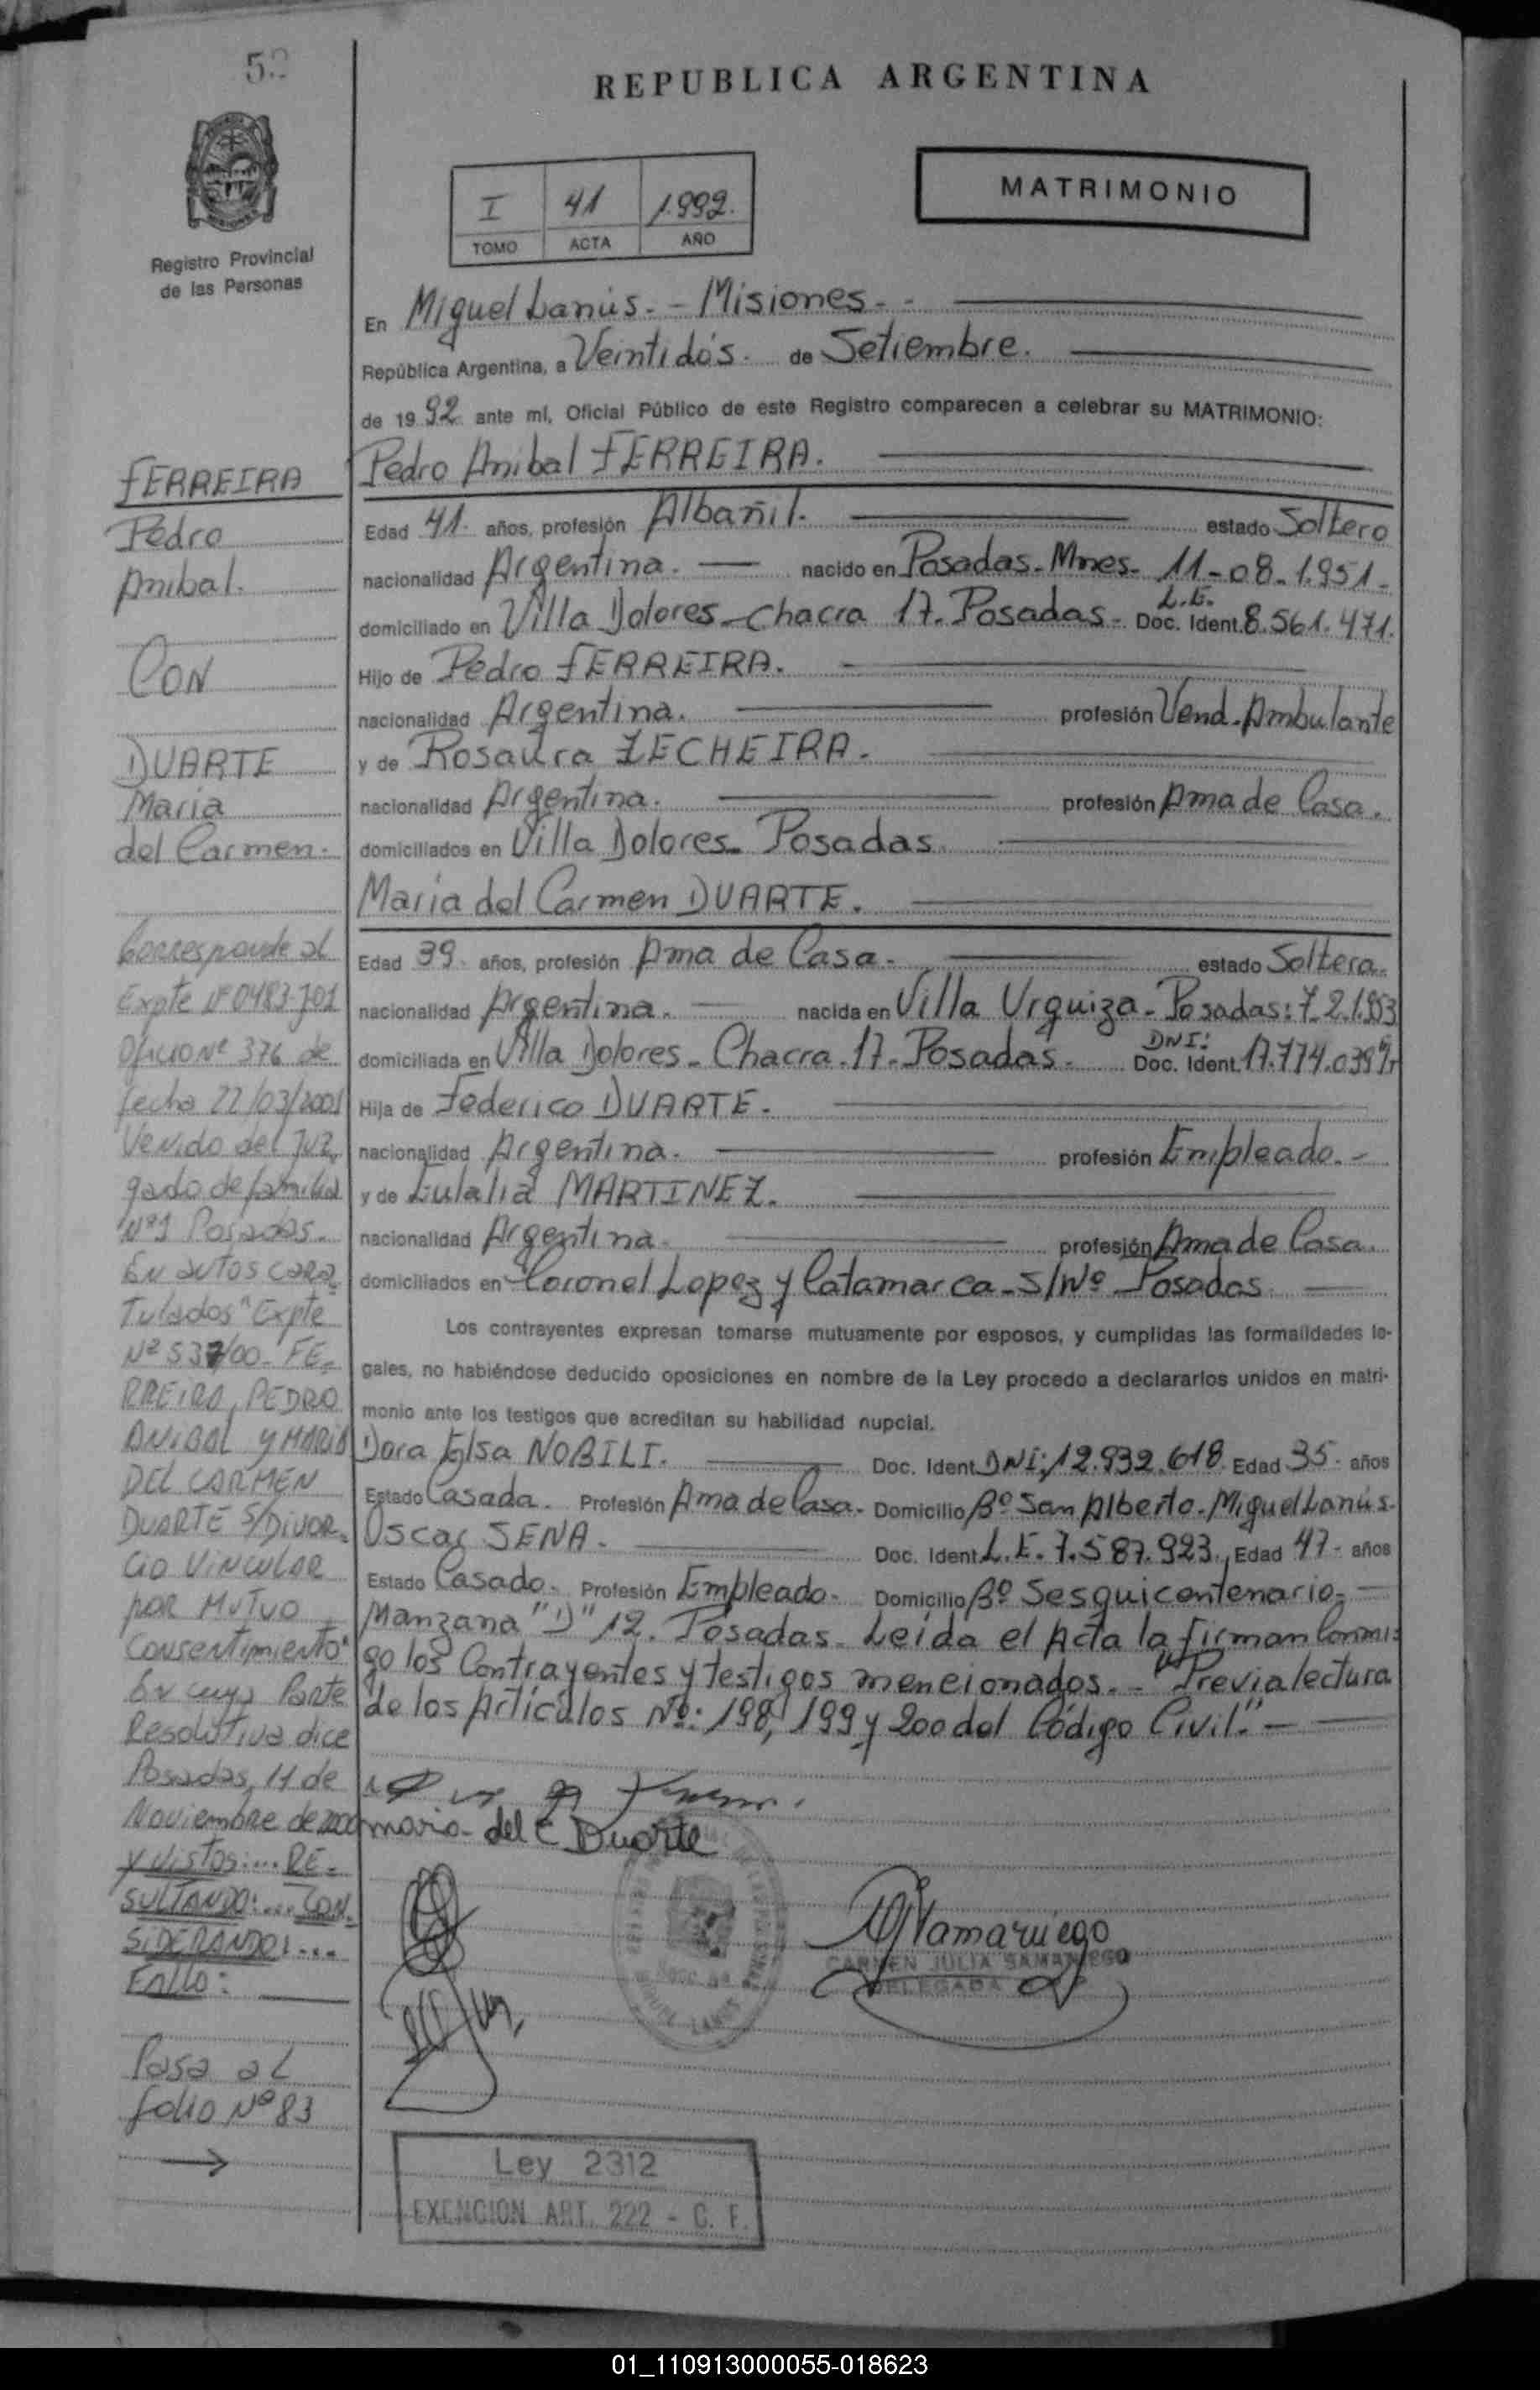 52
REPUBLICA ARGENTINA
I 41 1.992.
TOMO ACTA AÑO
MATRIMONIO
Registro Provincial
de las Personas
En Miguel Lanús. - Misiones. -
República Argentina, a Veintidós. de Setiembre.
de 1992 ante mí, Oficial Público de este Registro comparecen a celebrar su MATRIMONIO:
Pedro Anibal FERREIRA.
Edad 41. años, profesión Albañil. estado Soltero
nacionalidad Argentina. nacido en Posadas-Mnes- 11-08-1.951-
domiciliado en Villa Dolores-Chacra 17. Posadas- Doc. Ident. L.E. 8.561.471.
Hijo de Pedro FERREIRA.
nacionalidad Argentina. profesión Vend. Ambulante
y de Rosaura ZECHEIRA.
nacionalidad Argentina. profesión Ama de Casa.
domiciliados en Villa Dolores. Posadas
Maria del Carmen DUARTE.
Edad 39. años, profesión Ama de Casa. estado Soltera.
nacionalidad Argentina. nacida en Villa Urquiza-Posadas: 7-2-1.953
domiciliada en Villa Dolores-Chacra.17-Posadas. Doc. Ident. DNI: 17.774.039
Hija de Federico DUARTE.
nacionalidad Argentina. profesión Empleado.-
y de Eulalia MARTINEZ.
nacionalidad Argentina. profesión Ama de Casa.
domiciliados en Coronel Lopez y Catamarca-S/Nº Posadas
Los contrayentes expresan tomarse mutuamente por esposos, y cumplidas las formalidades le-
gales, no habiéndose deducido oposiciones en nombre de la Ley procedo a declararlos unidos en matri-
monio ante los testigos que acreditan su habilidad nupcial.
Dora Elsa NOBILI. Doc. Ident. DNI: 12.932.618. Edad 35. años
Estado Casada. Profesión Ama de Casa. Domicilio Bº San Alberto-Miguel Lanús.
Oscar SENA. Doc. Ident. L.E. 7.587.923. Edad 47- años
Estado Casado. Profesión Empleado- Domicilio Bº Sesquicentenario-
Manzana "D" 12. Posadas. Leída el Acta la firman conmi
go los Contrayentes y testigos mencionados.- "Previa lectura
de los Artículos Nº: 198, 199 y 200 del Código Civil."-
Maria del C Duarte
CJSamaniego
CARMEN JULIA SAMANIEGO
DELEGADA
MIGUEL LANUS
Ley 2312
EXENCION ART. 222 - C. F.
FERREIRA
Pedro
Anibal.
CON
DUARTE
Maria
del Carmen.
Corresponde al
Expte Nº 0483-J01
Oficio Nº 376 de
fecha 22/03/2001
Venido del Juz
gado de familia
Nº 1 Posadas.
En autos cara
tulados "Expte
Nº 537/00- FE-
RREIRA, PEDRO
ANIBAL y MARIA
DEL CARMEN
DUARTE S/Divor-
cio Vincular
por Mutuo
Consentimiento"
En cuya Parte
Resolutiva dice
Posadas, 11 de
Noviembre de 2000
y VISTOS:... RE-
SULTANDO:... CON-
SIDERANDO:...
FALLO:
Pasa al
folio Nº 83
→
01_110913000055-018623